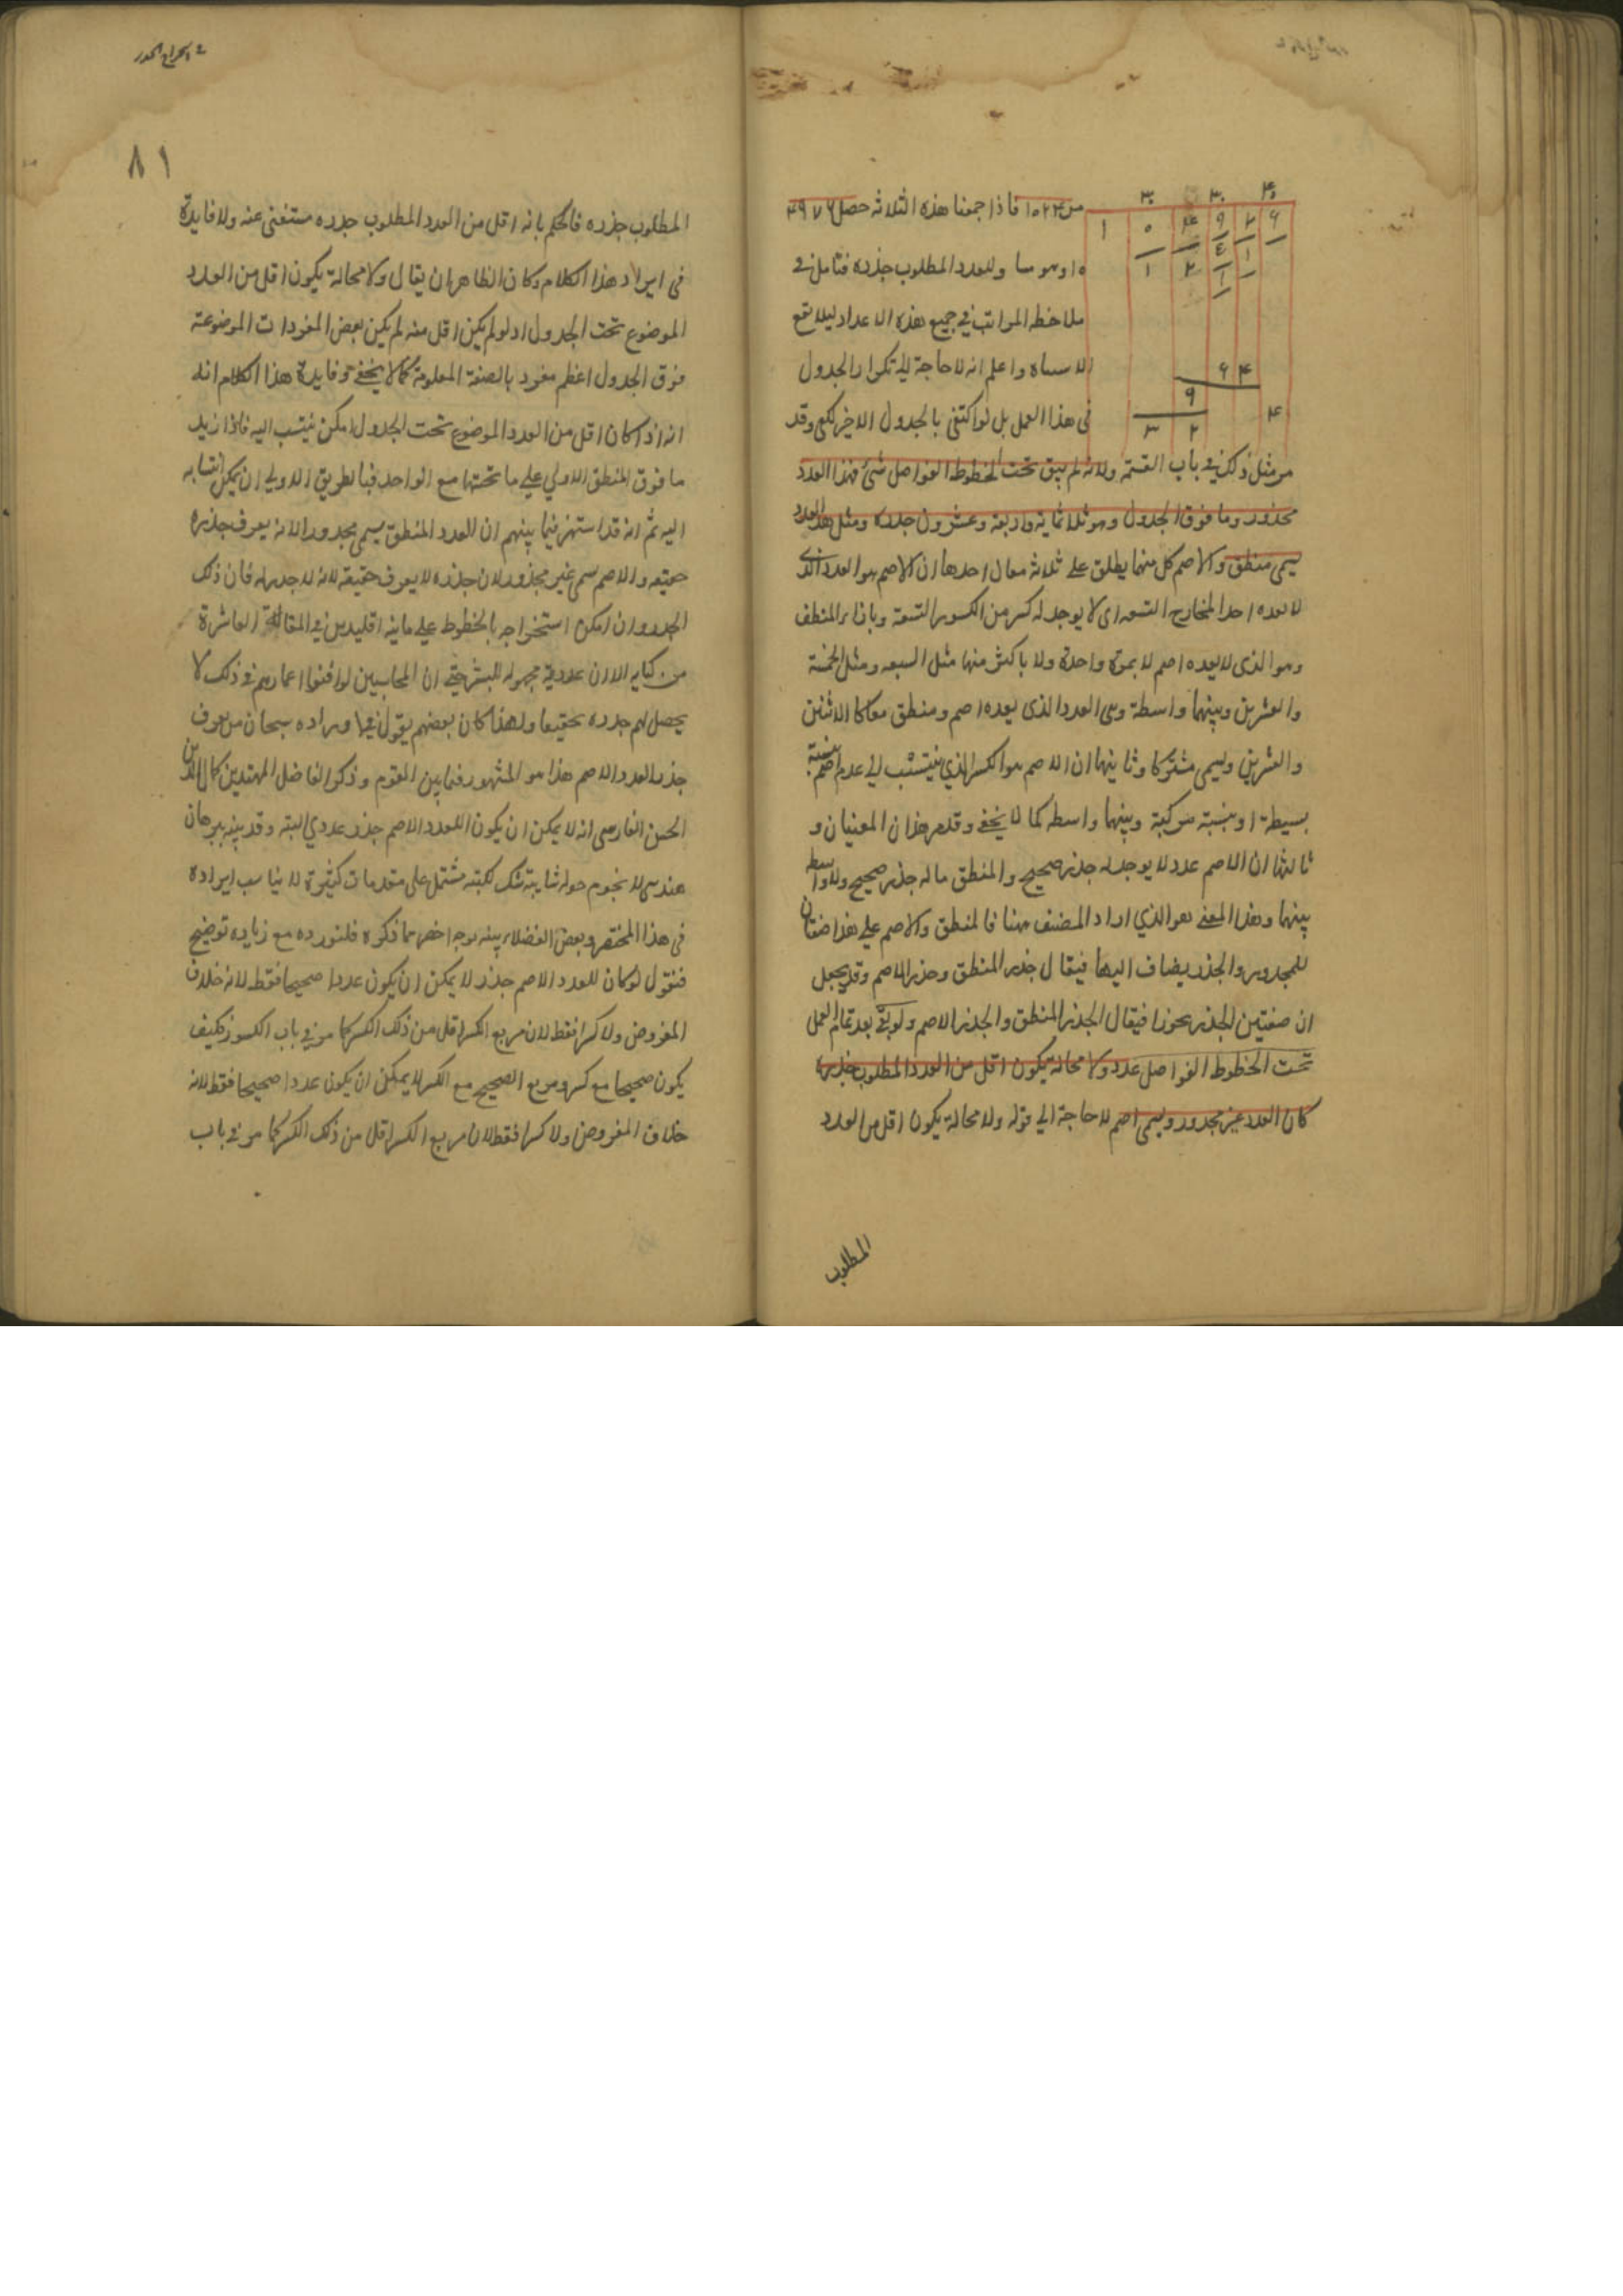 فاذا جمعنا هذه الثلاثه حصل
للعدد المطلوب جذره فتامل في
ملاحظه المراتب في جميع هذه الاعداد ليلا يقع
واعلم انه لا حاجة الي تكرار الجدول
في هذا العمل بل لو اكتفي بالجدول الاخير لكفي وقد
مر مثل ذلك في باب القسمة ولانه لم يبق تحت الخطوط الفواصل شئ فهذا العدد
مجذور وما فوق الجدول وهو ثلاثمائة واربعة وعشرون جذره ومثل هذا العدد
يسمي منطق والاصم كل منهما يطلق علي ثلاثة معان احدها ان الاصم هو العدد الذي
لا يعده احد المخارج التسعه اي لا يوجد له كسر من الكسور التسعة وبازائه المنطق
وهو الذي لا يعده اصم لا بمرة واحدة ولا باكثر منها مثل السبعه ومثل الخمسة
والعشرين وبينهما واسطة وهي العدد الذي يعده اصم ومنطق معا كالاثنين
والعشرين ويسمي مشتركا وثانيهما ان الاصم هو الكسر الذي ينتسب الي عدد اصم بنسبة
بسيطة او بنسبة مركبة وبينهما واسطه كما لا يخفي وقد مر هذان المعنيان و
ثالثها ان الاصم عدد لا يوجد له جذر صحيح والمنطق ما له جذر صحيح ولا واسطة
بينهما وهذا المعني هو الذي اراد المصنف ههنا فالمنطق والاصم علي هذا صفتان
للمجذور والجذر يضاف اليهما فيقال جذر المنطق وجذر الاصم وقد يجعل
ان صفتين للجذر تجوزا فيقال الجذر المنطق والجذر الاصم ولو بقي بعد تمام العمل
تحت الخطوط الفواصل عدد ولا محالة يكون اقل من العدد المطلوب جذره
كان العدد غير مجذور ويسمي اصم لا حاجة الي قوله ولا محالة يكون اقل من العدد
المطلوب
٨١
المطلوب جذره فالحكم بانه اقل من العدد المطلوب جذره مستغني عنه ولا فايدة
في ايراد هذا الكلام وكان الظاهر ان يقال ولا محالة يكون اقل من العدد
الموضوع تحت الجدول اذ لو لم يكن اقل منه لم يكن بعض المفردات الموضوعة
فوق الجدول اعظم مفرد بالصفة المعلومة كما لا يخفي وفايدة هذا الكلام انه
انه اذا كان اقل من العدد الموضوع تحت الجدول امكن ينتسب اليه فاذا زيد
ما فوق المنطق الاولي علي ما تحتها مع الواحد فبالطريق الاولي ان يمكن انتسابه
اليه ثم انه قد اشتهر فيما بينهم ان العدد المنطق يسمي مجذورا لانه يعرف جذره
حقيقه والاصم يسمي غير مجذور لان جذره لا يعرف حقيقه لانه لا جذر له فان ذلك
الجذر وان امكن استخراجه بالخطوط علي ما بينه اقليدس في المقالة العاشرة
من كتابه الا ان عدديته مجهوله للبشر حتي ان المحاسبين لو افنوا اعمارهم في ذلك لا
يحصل لهم جذره تحقيقا ولهذا كان بعضهم يقول في اوراده سبحان من يعرف
جذر العدد الاصم هذا هو المشهور فيما بين القوم وذكر الفاضل المهندس كمال الدين
الحسن الفارسي انه لا يمكن ان يكون للعدد الاصم جذر عددي البته وقد بينه ببرهان
هندسي لا يحوم حوله شايبة شك لكنه مشتمل علي مقدمات كثيرة لا يناسب ايراده
في هذا المختصر وبعض الفضلاء بينه بوجه اخصر مما ذكره فلنورده مع زياده توضيح
فنقول لو كان للعدد الاصم جذر لا يمكن ان يكون عددا صحيحا فقط لانه خلاف
المفروض ولا كسرا فقط لان مربع الكسر اقل من ذلك الكسر كما مر في باب الكسور فكيف
يكون صحيحا مع كسر ومربع الصحيح مع الكسر لا يمكن ان يكون عددا صحيحا فقط لانه
خلاف المفروض ولا كسرا فقط لان مربع الكسر اقل من ذلك الكسر كما مر في باب